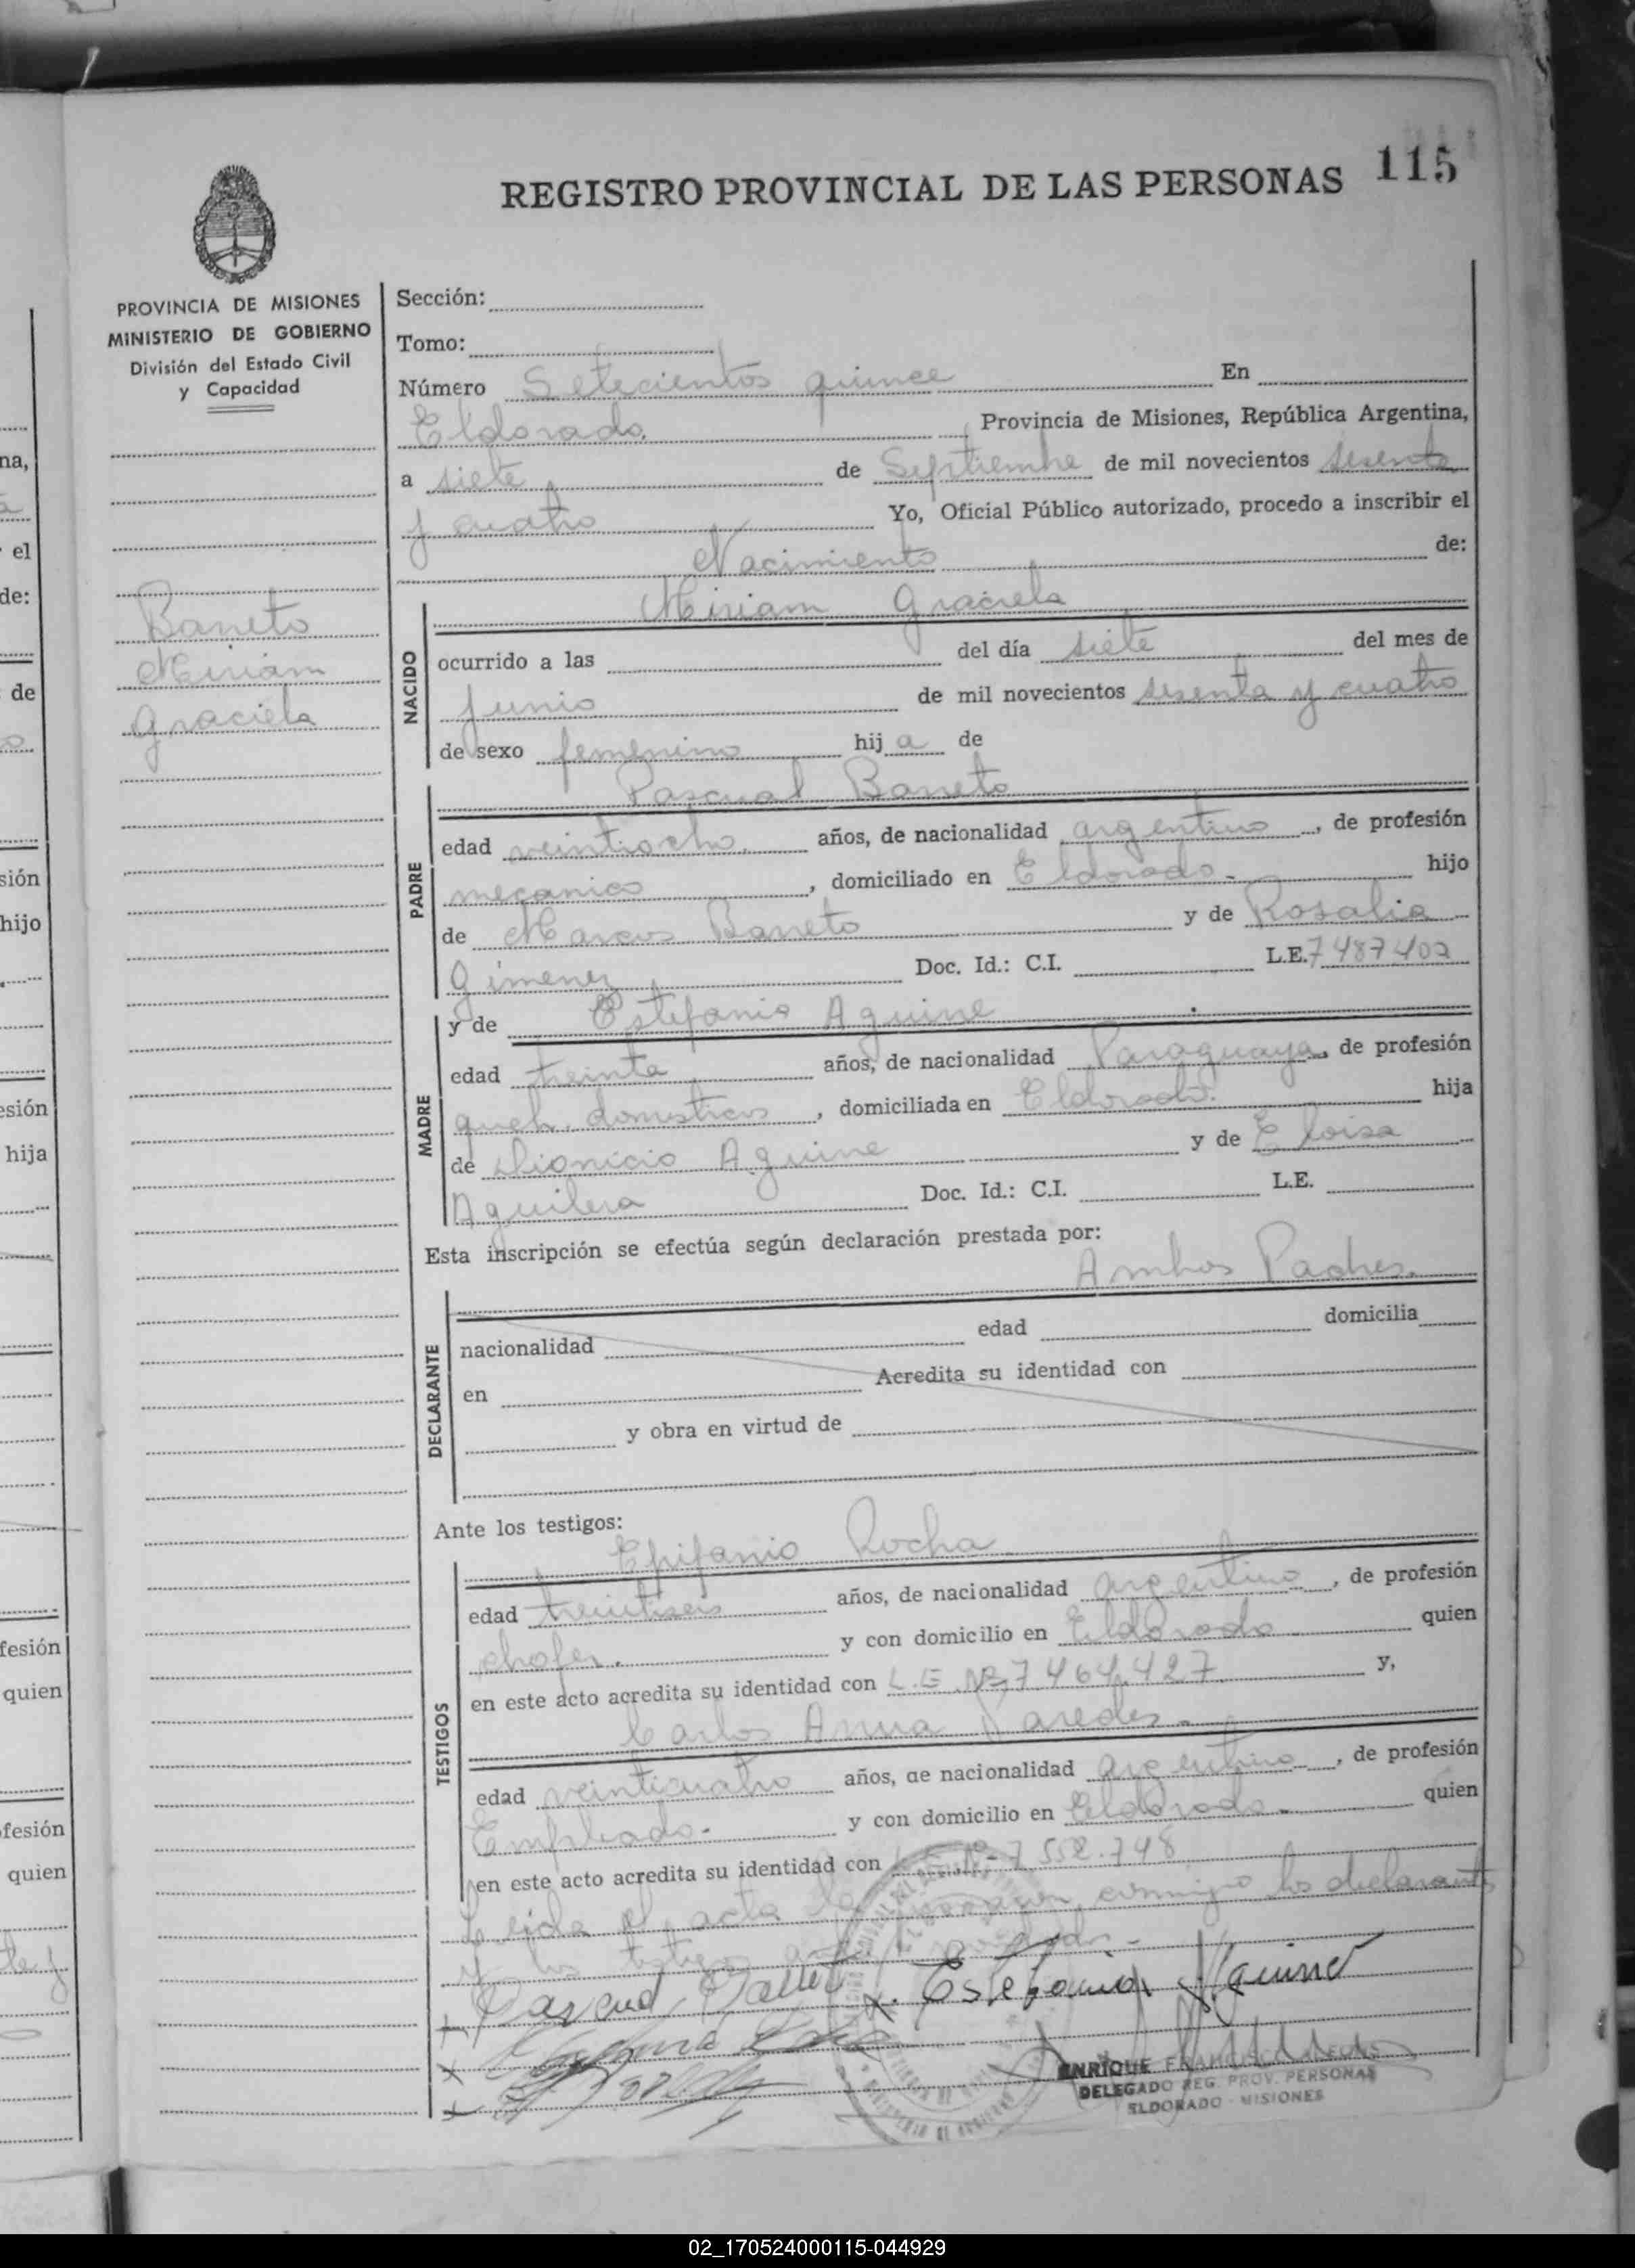 REGISTRO PROVINCIAL DE LAS PERSONAS 115
PROVINCIA DE MISIONES
MINISTERIO DE GOBIERNO
División del Estado Civil
y Capacidad
Barreto
Miriam
Graciela
Sección:
Tomo:
Número Setecientos quince En
Eldorado. Provincia de Misiones, República Argentina,
a siete de Septiembre de mil novecientos sesenta
y cuatro Yo, Oficial Público autorizado, procedo a inscribir el
Nacimiento de:
NACIDO
Miriam Graciela
ocurrido a las del día siete del mes de
junio de mil novecientos sesenta y cuatro
de sexo femenino hija de
PADRE
Pascual Barreto
edad veintiocho. años, de nacionalidad argentino, de profesión
mecanico, domiciliado en Eldorado- hijo
de Marcos Barreto y de Rosalia
Gimenez Doc. Id.: C.I. L.E. 7487402
MADRE
y de Estefania Aguirre
edad treinta años, de nacionalidad Paraguaya, de profesión
queh. domesticos, domiciliada en Eldorado. hija
de Dionicio Aguirre y de Eloisa
Aguilera Doc. Id.: C.I. L.E.
Esta inscripción se efectúa según declaración prestada por:
Ambos Padres.
DECLARANTE
nacionalidad edad domicilia
en Acredita su identidad con
y obra en virtud de
Ante los testigos:
TESTIGOS
Epifanio Rocha
edad treintiseis años, de nacionalidad argentino, de profesión
chofer. y con domicilio en Eldorado quien
en este acto acredita su identidad con L.E. Nº 7464.427 y,
Carlos Paredes-
edad veinticuatro años, de nacionalidad argentino, de profesión
Empleado- y con domicilio en Eldorado- quien
en este acto acredita su identidad con Nº 7 552.748
Leida el acta la conmigo los declarantes
y los testigos
Pascual Barreto Estefania Aguirre
ENRIQUE FRANCISCO
DELEGADO REG. PROV. PERSONAS
ELDORADO - MISIONES
02_170524000115-044929